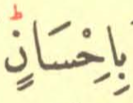 بِاِحْسَانٍؕ